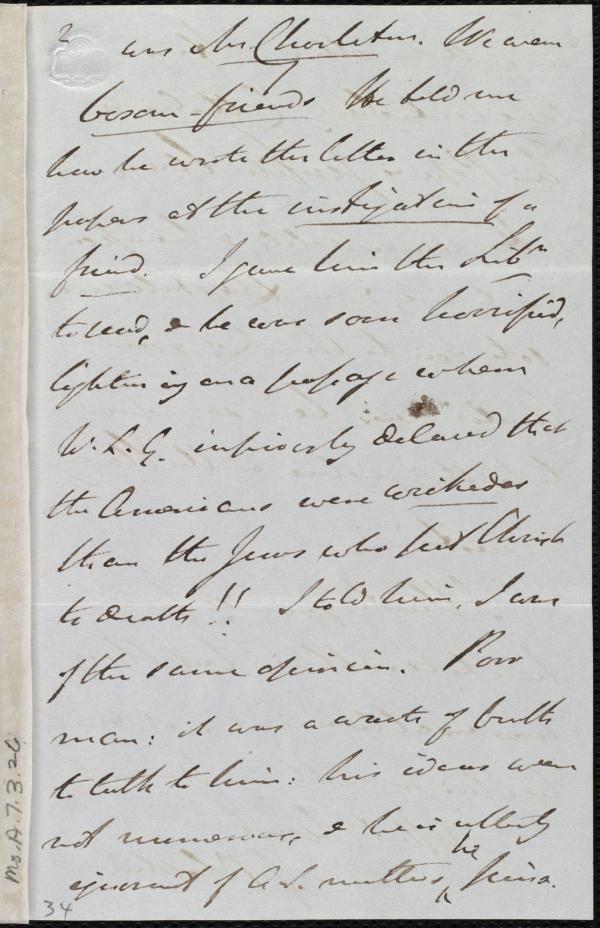 2
was Mr Charleton. We were
bosom-friends He told me
how he wrote the letter in the
papers at the instigation of a
friend. I gave him the Libr
to read, & he was soon horrified,
lighting on a passage where
W.L.G. impiously declared that
the Americans were wickeder
than the Jews who put Christ
to death!! I told him, I was
of the same opinion. Poor
man: it was a waste of breath
to talk to him: his ideas were
not numerous, & he is utterly
ignorant of A.S. matters he
34
Ms. A. 7. 3. 26